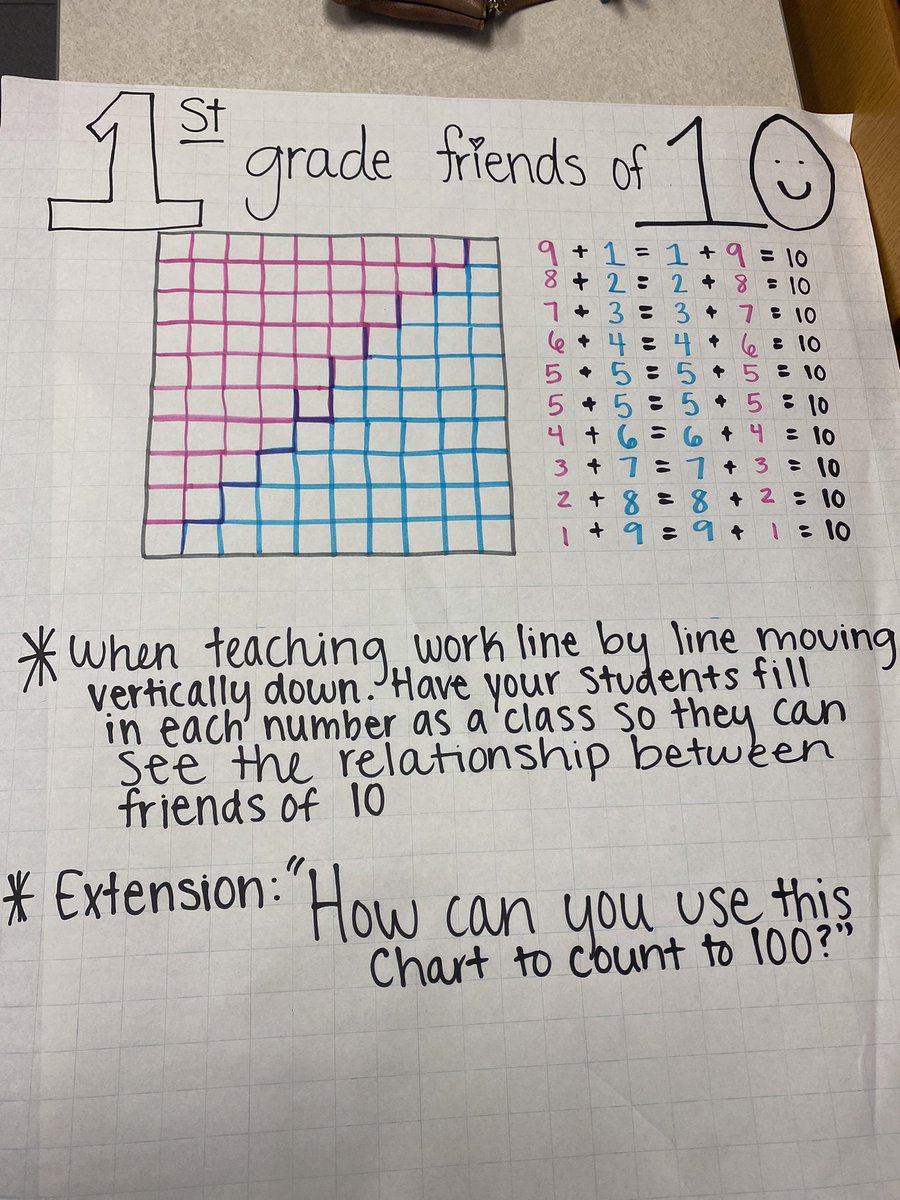 1st grade friends of 10
9 + 1 = 1 + 9 = 10
8 + 2 = 2 + 8 = 10
7 + 3 = 3 + 7 = 10
6 + 4 = 4 + 6 = 10
5 + 5 = 5 + 5 = 10
5 + 5 = 5 + 5 = 10
4 + 6 = 6 + 4 = 10
3 + 7 = 7 + 3 = 10
2 + 8 = 8 + 2 = 10
1 + 9 = 9 + 1 = 10
* When teaching, work line by line moving
vertically down. Have your students fill
in each number as a class so they can
see the relationship between
friends of 10
* Extension: "How can you use this
Chart to count to 100?"